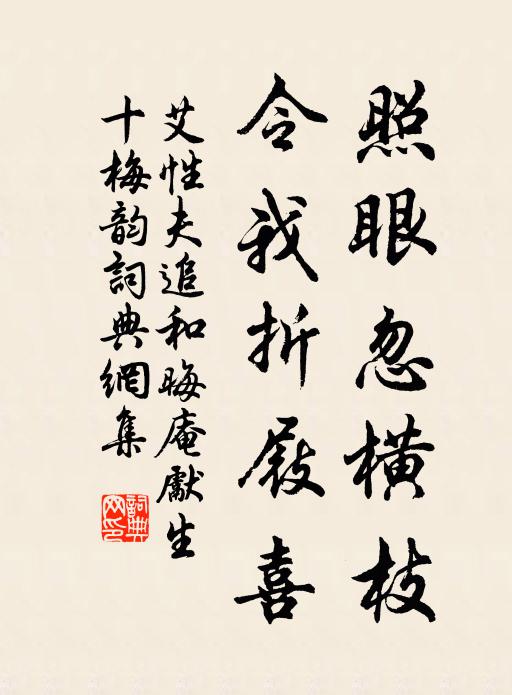 照眼忽橫枝
令我折屐喜
艾性夫追和晦庵獻生
十梅韵詞典網集
詞典
网印